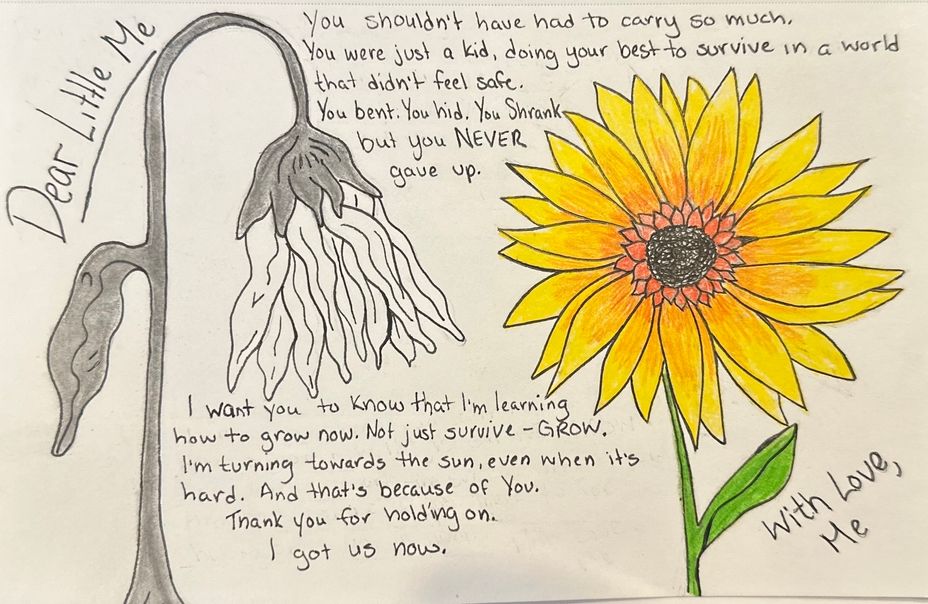 Dear Little Me
You shouldn't have had to carry so much.
You were just a kid, doing your best to survive in a world
that didn't feel safe.
You bent. You hid. You Shrank
but you NEVER
gave up.
I want you to know that I'm learning
how to grow now. Not just survive - GROW.
I'm turning towards the sun, even when it's
hard. And that's because of You.
Thank you for holding on.
I got us now.
With Love,
Me